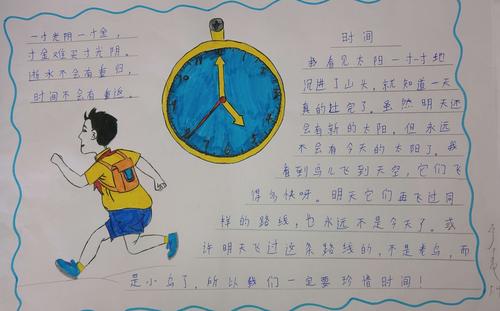 一寸光阴一寸金，
寸金难买寸光阴。
逝水不会有重归，
时间不会有重返。
时间
我看见太阳一寸一寸地
沉进了山头，就知道一天
真的过完了。虽然明天还
会有新的太阳，但永远
不会有今天的太阳了。我
看到鸟儿飞到天空，它们飞
得多快呀。明天它们再飞过同
样的路线，也永远不是今天了。或
许明天飞过这条路线的，不是老鸟，而
是小鸟了。所以我们一定要珍惜时间！